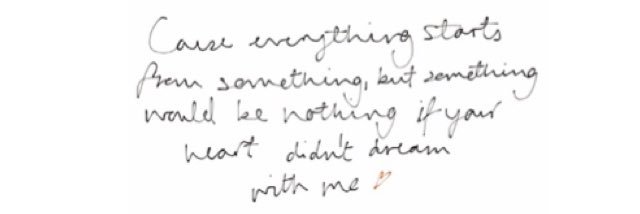 Cause everything starts
from something, but something
would be nothing if your
heart didn't dream
with me ♡